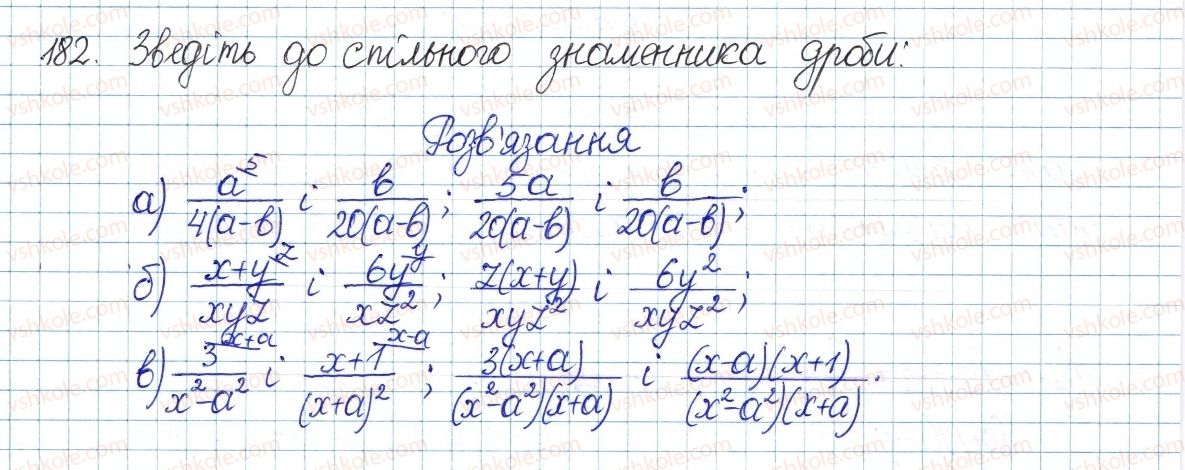 182. Зведіть до спільного знаменника дроби:
Розв'язання
а) a^5/4(a-b) і b/20(a-b); 5a/20(a-b) і b/20(a-b);
б) x+y^z/xyz і 6y^y/xz²; z(x+y)/xyz² і 6y²/xyz²;
в) 3^x+a/x²-a² і x+1^x-a/(x+a)²; 3(x+a)/(x²-a²)(x+a) і (x-a)(x+1)/(x²-a²)(x+a).